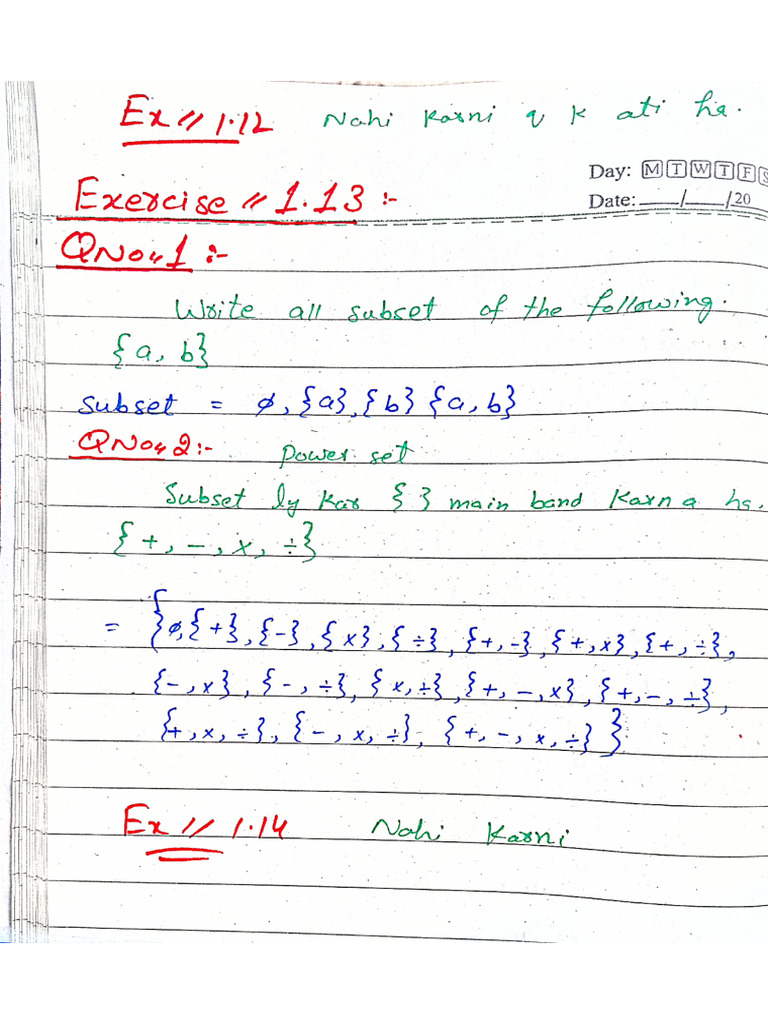 Ex // 1.12 Nahi Karni q k ati ha.
Day: M T W T F S
Exercise // 1.13 :-
Date:____/____/20
QNo.,1 :-
Write all subset of the following.
{a, b}
subset = ø, {a}, {b} {a, b}
QNo., 2:- Power set
Subset ly kar { } main band Karna ha.
{+, -, x, ÷}
= {ø, {+}, {-}, {x}, {÷}, {+, -}, {+, x}, {+, ÷},
{-, x}, {-, ÷}, {x, ÷}, {+, -, x}, {+, -, ÷},
{+, x, ÷}, {-, x, ÷}, {+, -, x, ÷}}
Ex // 1.14 Nahi Karni